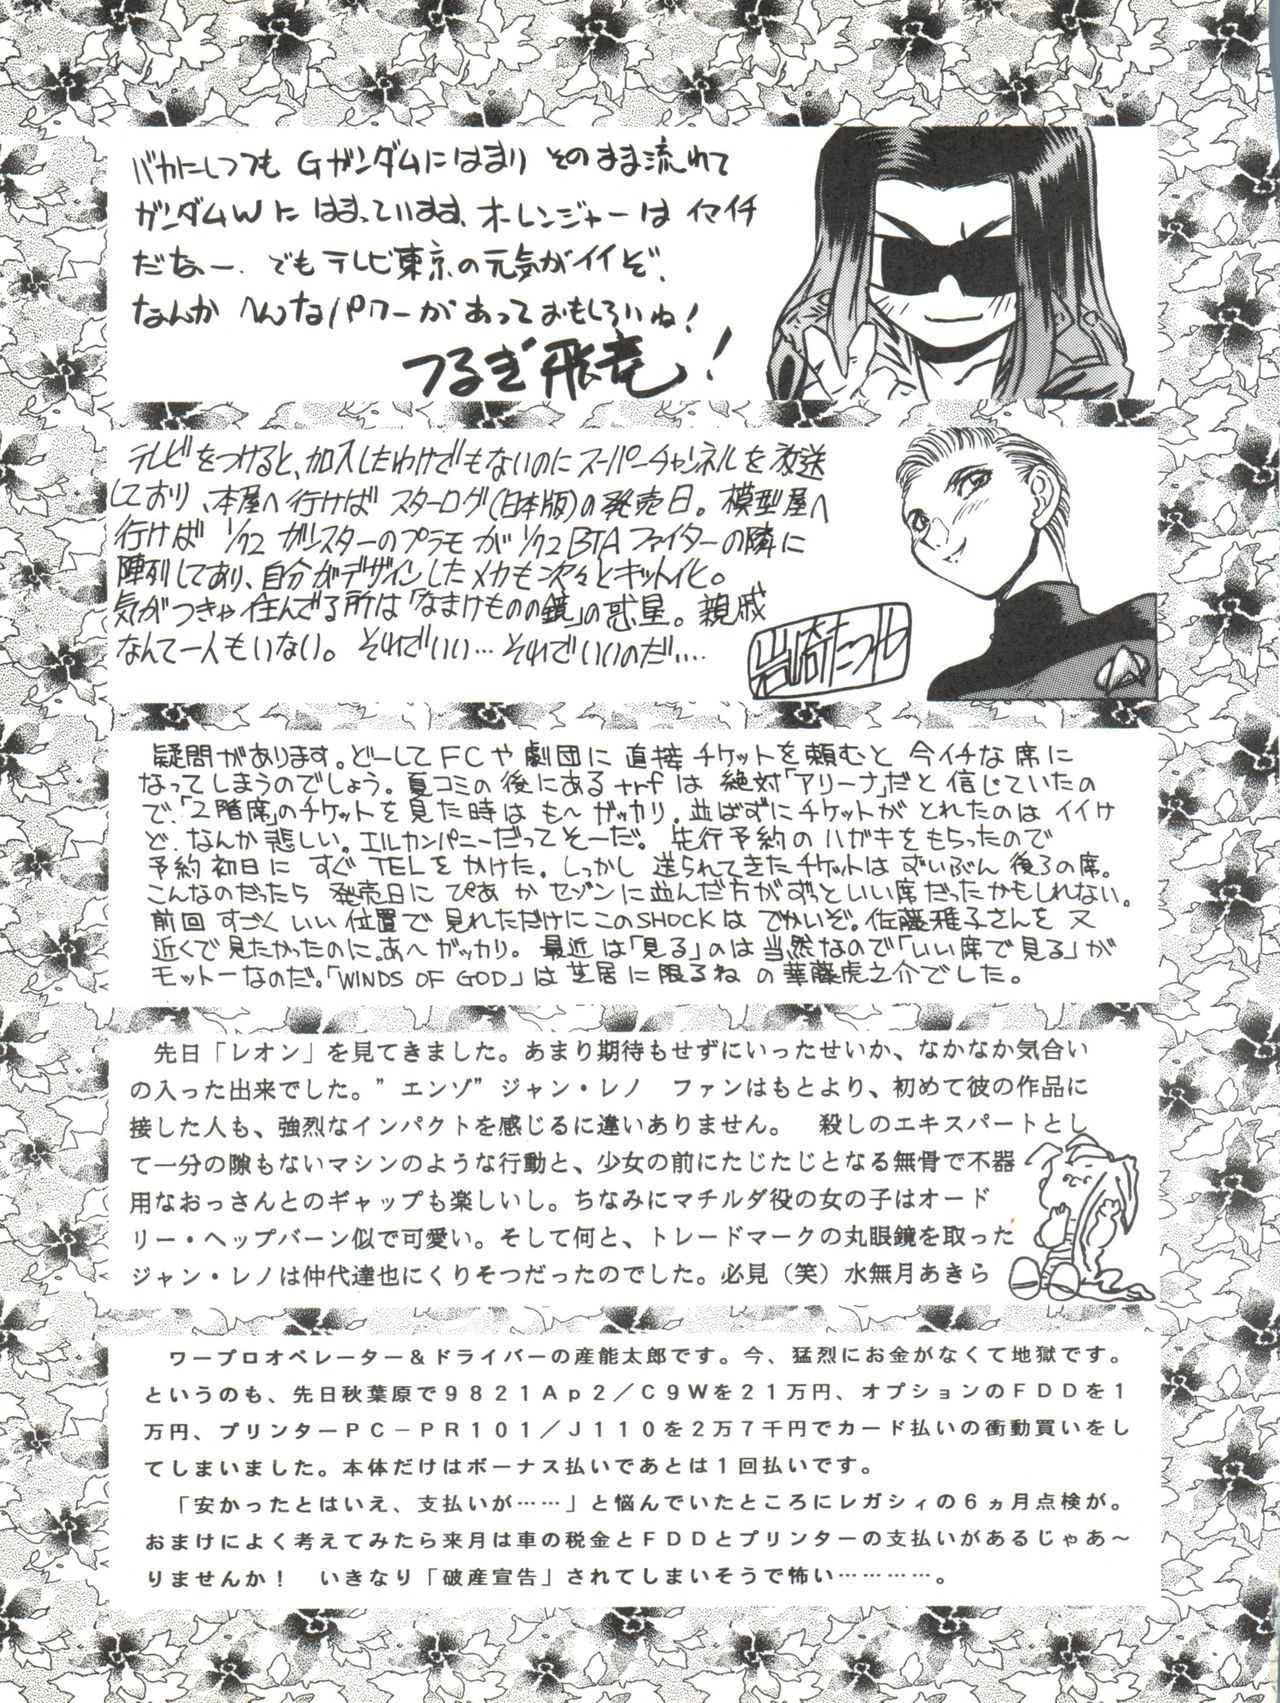 バカにしつつも Gガンダムにはまり そのまま流れて
ガンダムWに はまっています、オーレンジャーは イマイチ
だなー. でもテレビ東京の元気がイイぞ.
なんか へんなパワーがあっておもしろいね!
つるぎ飛竜!
テレビをつけると、加入したわけでもないのにスーパーチャンネルを放送
しており、本屋へ行けば スターログ(日本版)の発売日。模型屋へ
行けば 1/72 ガンスターのプラモが 1/72 BTAファイターの隣に
陣列してあり、自分がデザインしたメカも次々とキット化。
気がつきゃ住んでる所は「なまけものの鏡」の惑星。親戚
なんて一人もいない。それでいい…それでいいのだ……
岩崎たつや
疑問があります。どーしてFCや劇団に直接チケットを頼むと今イチな席に
なってしまうのでしょう。夏コミの後にあるtrfは絶対「アリーナ」だと信じていたの
で、「2階席」のチケットを見た時はも〜ガッカリ。並ばずにチケットがとれたのはイイけ
ど、なんか悲しい。エルカンパニーだってそーだ。先行予約のハガキをもらったので
予約初日にすぐTELをかけた。しっかし送られてきたチケットはずいぶん後ろの席。
こんなのだったら発売日にぴあかセゾンに並んだ方がずっといい席だったかもしれない。
前回すごくいい位置で見れただけにこのSHOCKはでかいぞ。佐藤雅子さんを又
近くで見たかったのに。あ〜ガッカリ。最近は「見る」のは当然なので「いい席で見る」が
モットーなのだ。「WINDS OF GOD」は芝居に限るねの華藤虎之介でした。
先日「レオン」を見てきました。あまり期待もせずにいったせいか、なかなか気合い
の入った出来でした。”エンゾ”ジャン・レノ　ファンはもとより、初めて彼の作品に
接した人も、強烈なインパクトを感じるに違いありません。　殺しのエキスパートとし
て一分の隙もないマシンのような行動と、少女の前にたじたじとなる無骨で不器
用なおっさんとのギャップも楽しいし。ちなみにマチルダ役の女の子はオード
リー・ヘップバーン似で可愛い。そして何と、トレードマークの丸眼鏡を取った
ジャン・レノは仲代達也にくりそつだったのでした。必見（笑）水無月あきら
ワープロオペレーター＆ドライバーの産能太郎です。今、猛烈にお金がなくて地獄です。
というのも、先日秋葉原で９８２１Ａｐ２／Ｃ９Ｗを２１万円、オプションのＦＤＤを１
万円、プリンターＰＣ－ＰＲ１０１／Ｊ１１０を２万７千円でカード払いの衝動買いをし
てしまいました。本体だけはボーナス払いであとは１回払いです。
「安かったとはいえ、支払いが……」と悩んでいたところにレガシィの６ヵ月点検が。
おまけによく考えてみたら来月は車の税金とＦＤＤとプリンターの支払いがあるじゃあ～
りませんか！　いきなり「破産宣告」されてしまいそうで怖い…………。